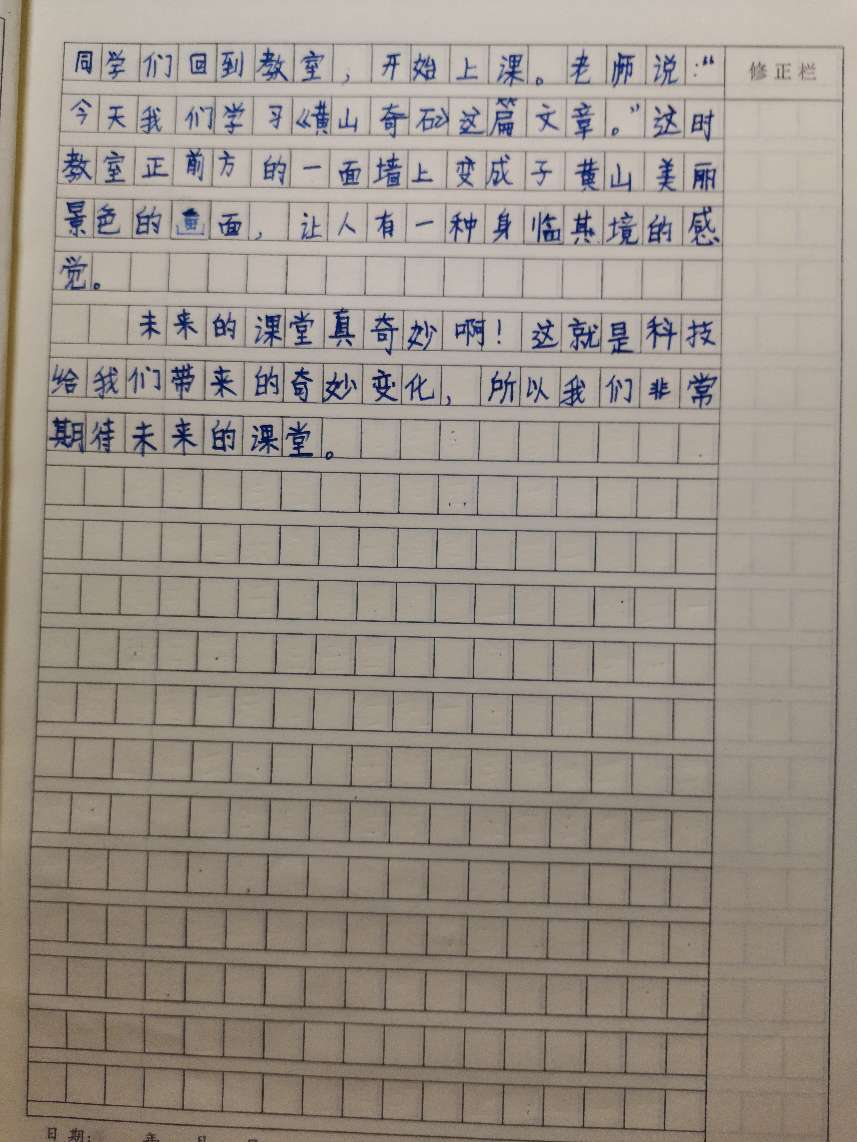 同学们回到教室，开始上课。老师说：“
修正栏
今天我们学习《黄山奇石》这篇文章。”这时
教室正前方的一面墙上变成子黄山美丽
景色的画面，让人有一种身临其境的感
觉。
未来的课堂真奇妙啊！这就是科技
给我们带来的奇妙变化，所以我们非常
期待未来的课堂。
日期： 年 月